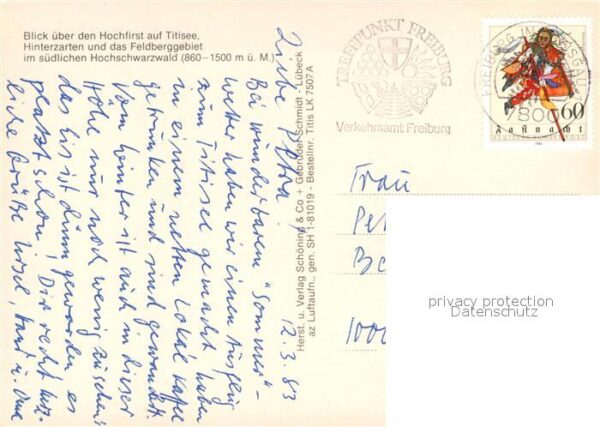 Blick über den Hochfirst auf Titisee,
Hinterzarten und das Feldberggebiet
im südlichen Hochschwarzwald (860–1500 m ü. M.)
12.3.83
Liebe Petra!
Bei wunderbarem "Sommer"-
wetter haben wir einen Ausflug
zum Titisee gemacht haben
in einem netten Lokal Kaffee
getrunken und sind gewandert.
Vom Winter ist auch in dieser
Höhe nur noch wenig zu sehen!
das Eis ist dünn geworden es
platzt schon! Dir recht herz-
liche Grüße Ursel, Hans u. Oma
Herst. u. Verlag Schöning & Co + Gebrüder Schmidt · Lübeck
az Luftaufn., gen. SH 1-81019 - Bestellnr. Titis LK 7507A
TREFFPUNKT FREIBURG
Verkehrsamt Freiburg
FREIBURG IM BREISGAU
7800
60
Fastnacht
DEUTSCHE BUNDESPOST
Frau
Pe
Be
1000
privacy protection
Datenschutz